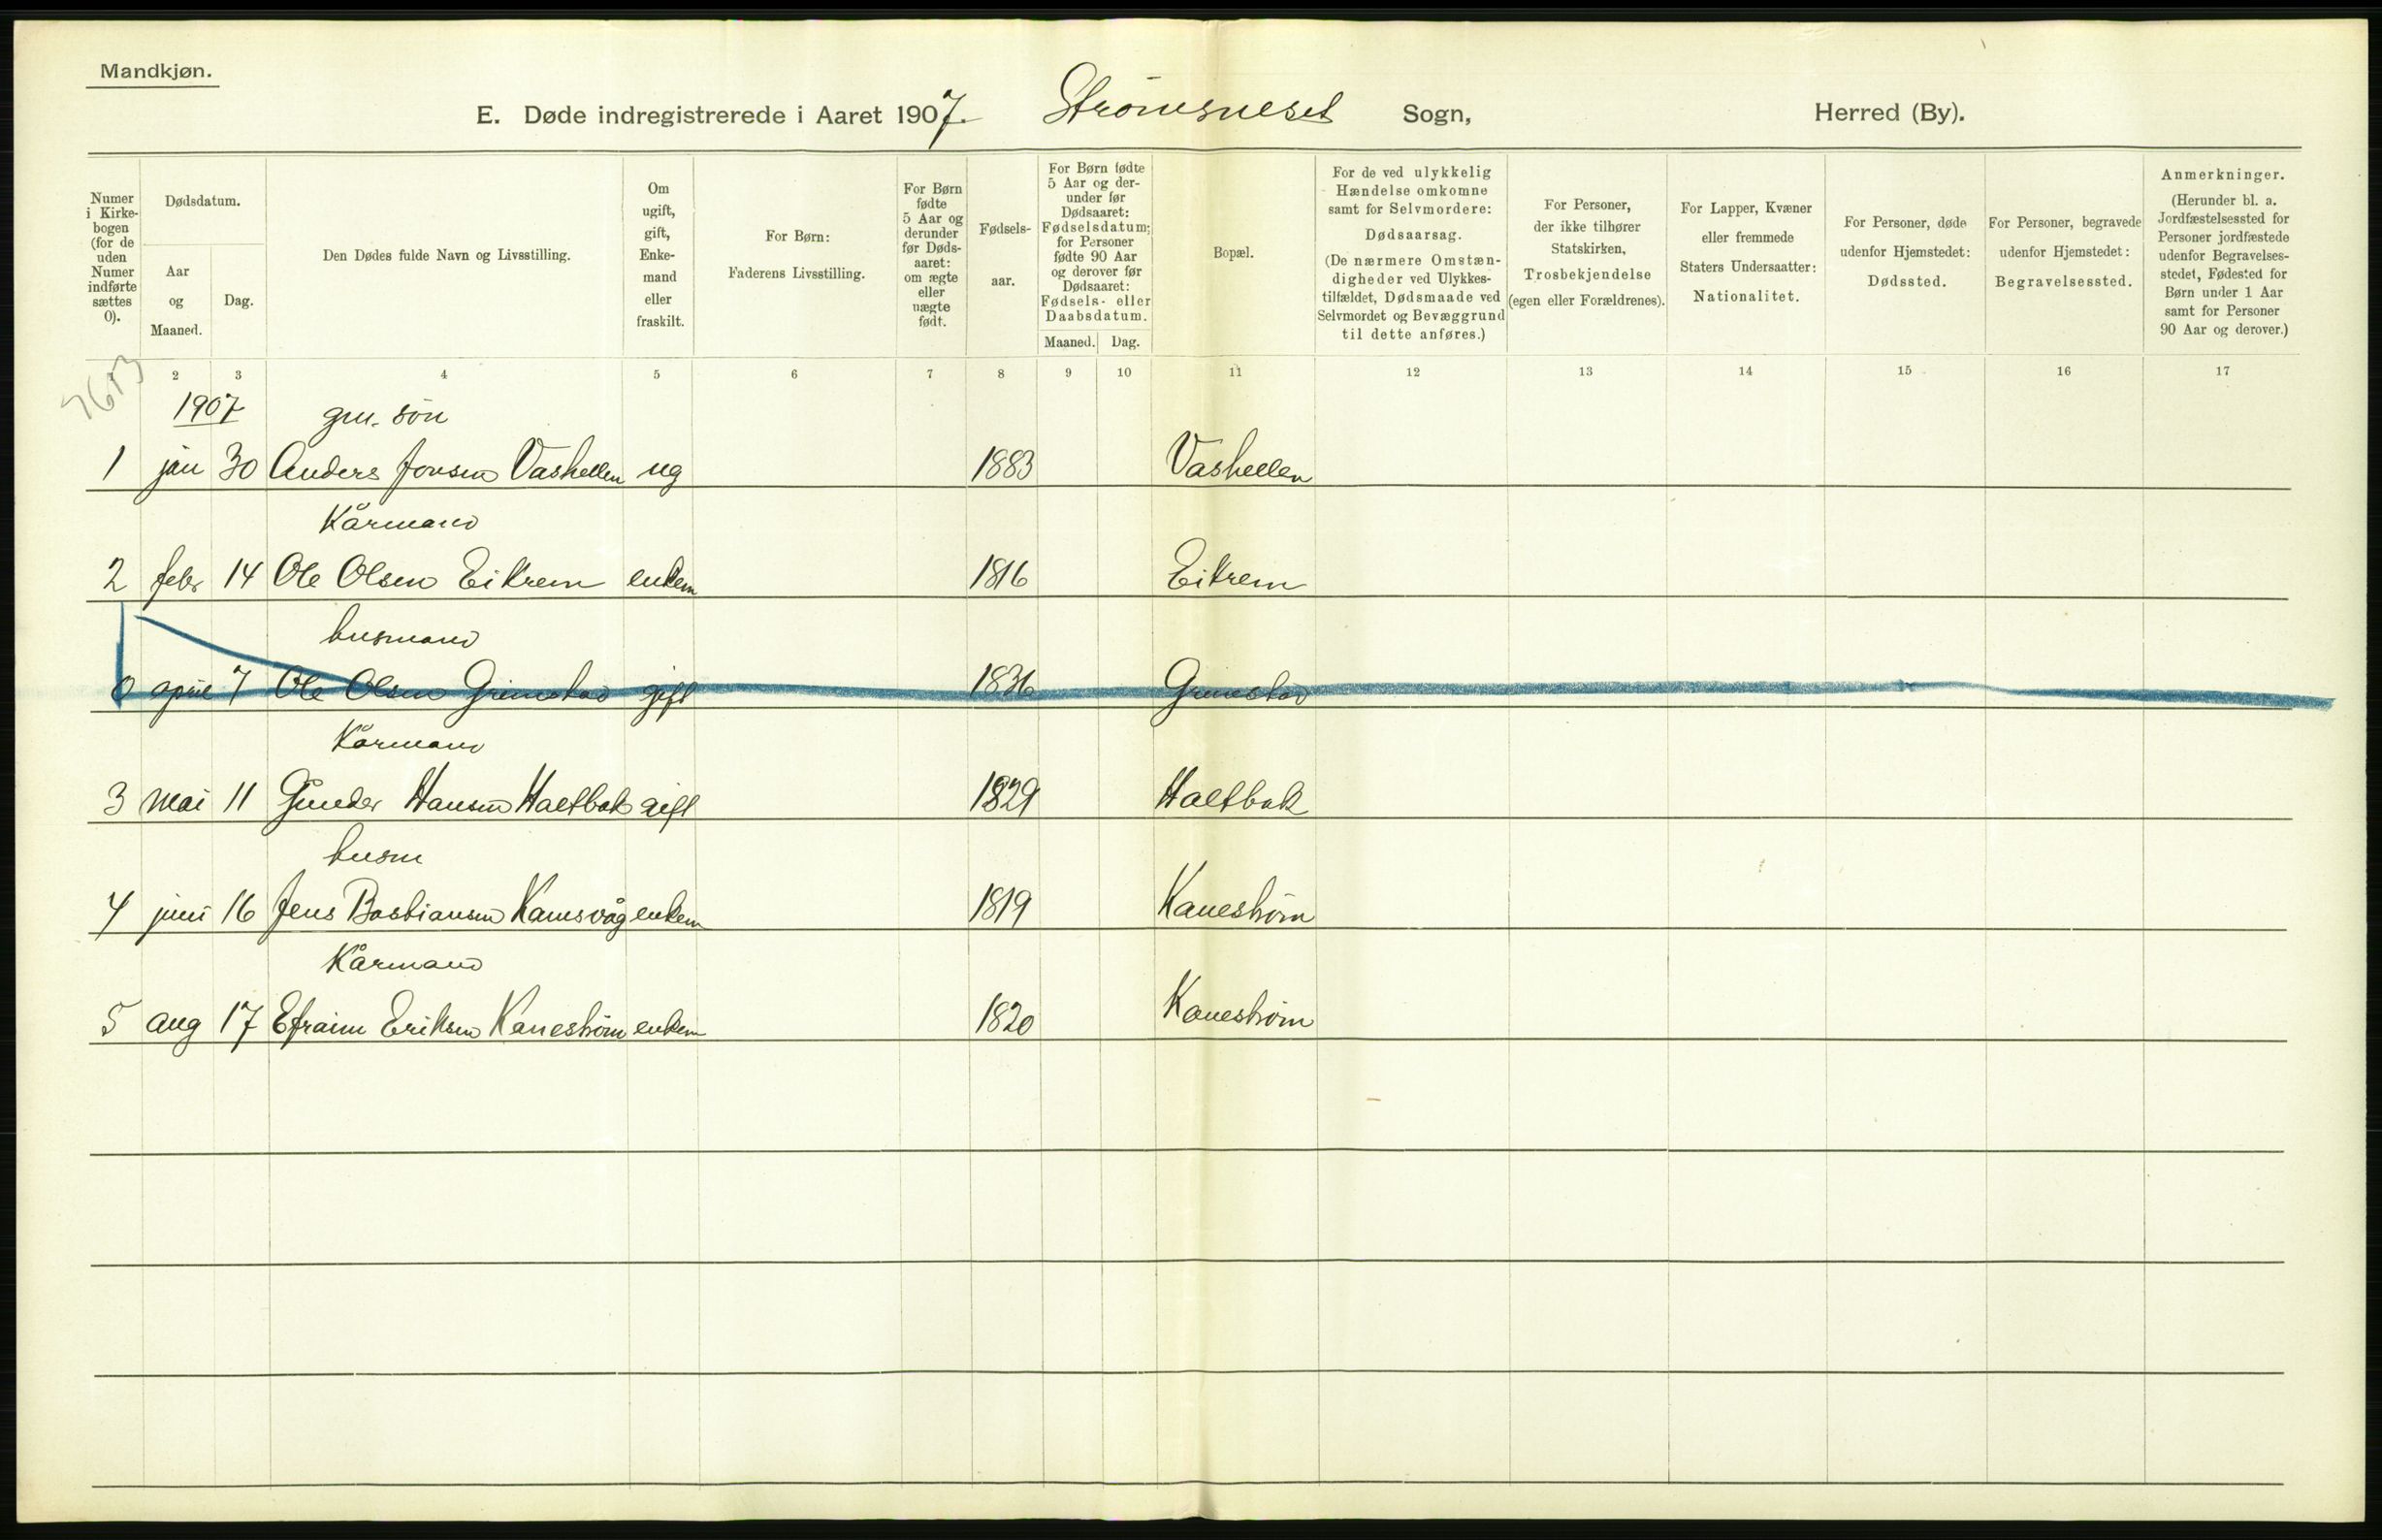 Mandkjøn.
E. Døde indregistrerede i Aaret 1907. Strømsneset Sogn, Herred (By).
Numer i Kirkebogen (for de uden Numer indførte sættes 0).
Dødsdatum.
Aar og Maaned.
Dag.
Den Dødes fulde Navn og Livsstilling.
Om ugift, gift, Enkemand eller fraskilt.
For Børn: Faderens Livsstilling.
For Børn fødte 5 Aar og derunder før Dødsaaret: om ægte eller uægte født.
Fødselsaar.
For Børn fødte 5 Aar og derunder før Dødsaaret: Fødselsdatum; for Personer fødte 90 Aar og derover før Dødsaaret: Fødsels- eller Daabsdatum.
Maaned. Dag.
Bopæl.
For de ved ulykkelig Hændelse omkomne samt for Selvmordere: Dødsaarsag. (De nærmere Omstændigheder ved Ulykkestilfældet, Dødsmaade ved Selvmordet og Bevæggrund til dette anføres.)
For Personer, der ikke tilhører Statskirken, Trosbekjendelse (egen eller Forældrenes).
For Lapper, Kvæner eller fremmede Staters Undersaatter: Nationalitet.
For Personer, døde udenfor Hjemstedet: Dødssted.
For Personer, begravede udenfor Hjemstedet: Begravelsessted.
Anmerkninger. (Herunder bl. a. Jordfæstelsessted for Personer jordfæstede udenfor Begravelsesstedet, Fødested for Børn under 1 Aar samt for Personer 90 Aar og derover.)
2 3 4 5 6 7 8 9 10 11 12 13 14 15 16 17
1907 gm. søn
1 jan 30 Anders Jonsen Vashellen ug 1883 Vashellen
Kårmand
2 febr 14 Ole Olsen Eikrem enkem 1816 Eikrem
husmand
0 april 7 Ole Olsen Grimstad gift 1836 Grimstad
Kårmand
3 mai 11 Gunder Hansen Haltbak gift 1829 Haltbak
husm
4 juni 16 Jens Bastiansen Kanesvåg enkem 1819 Kanestrøm
Kårmand
5 aug 17 Efraim Eriksen Kanestrøm enkem 1820 Kanestrøm